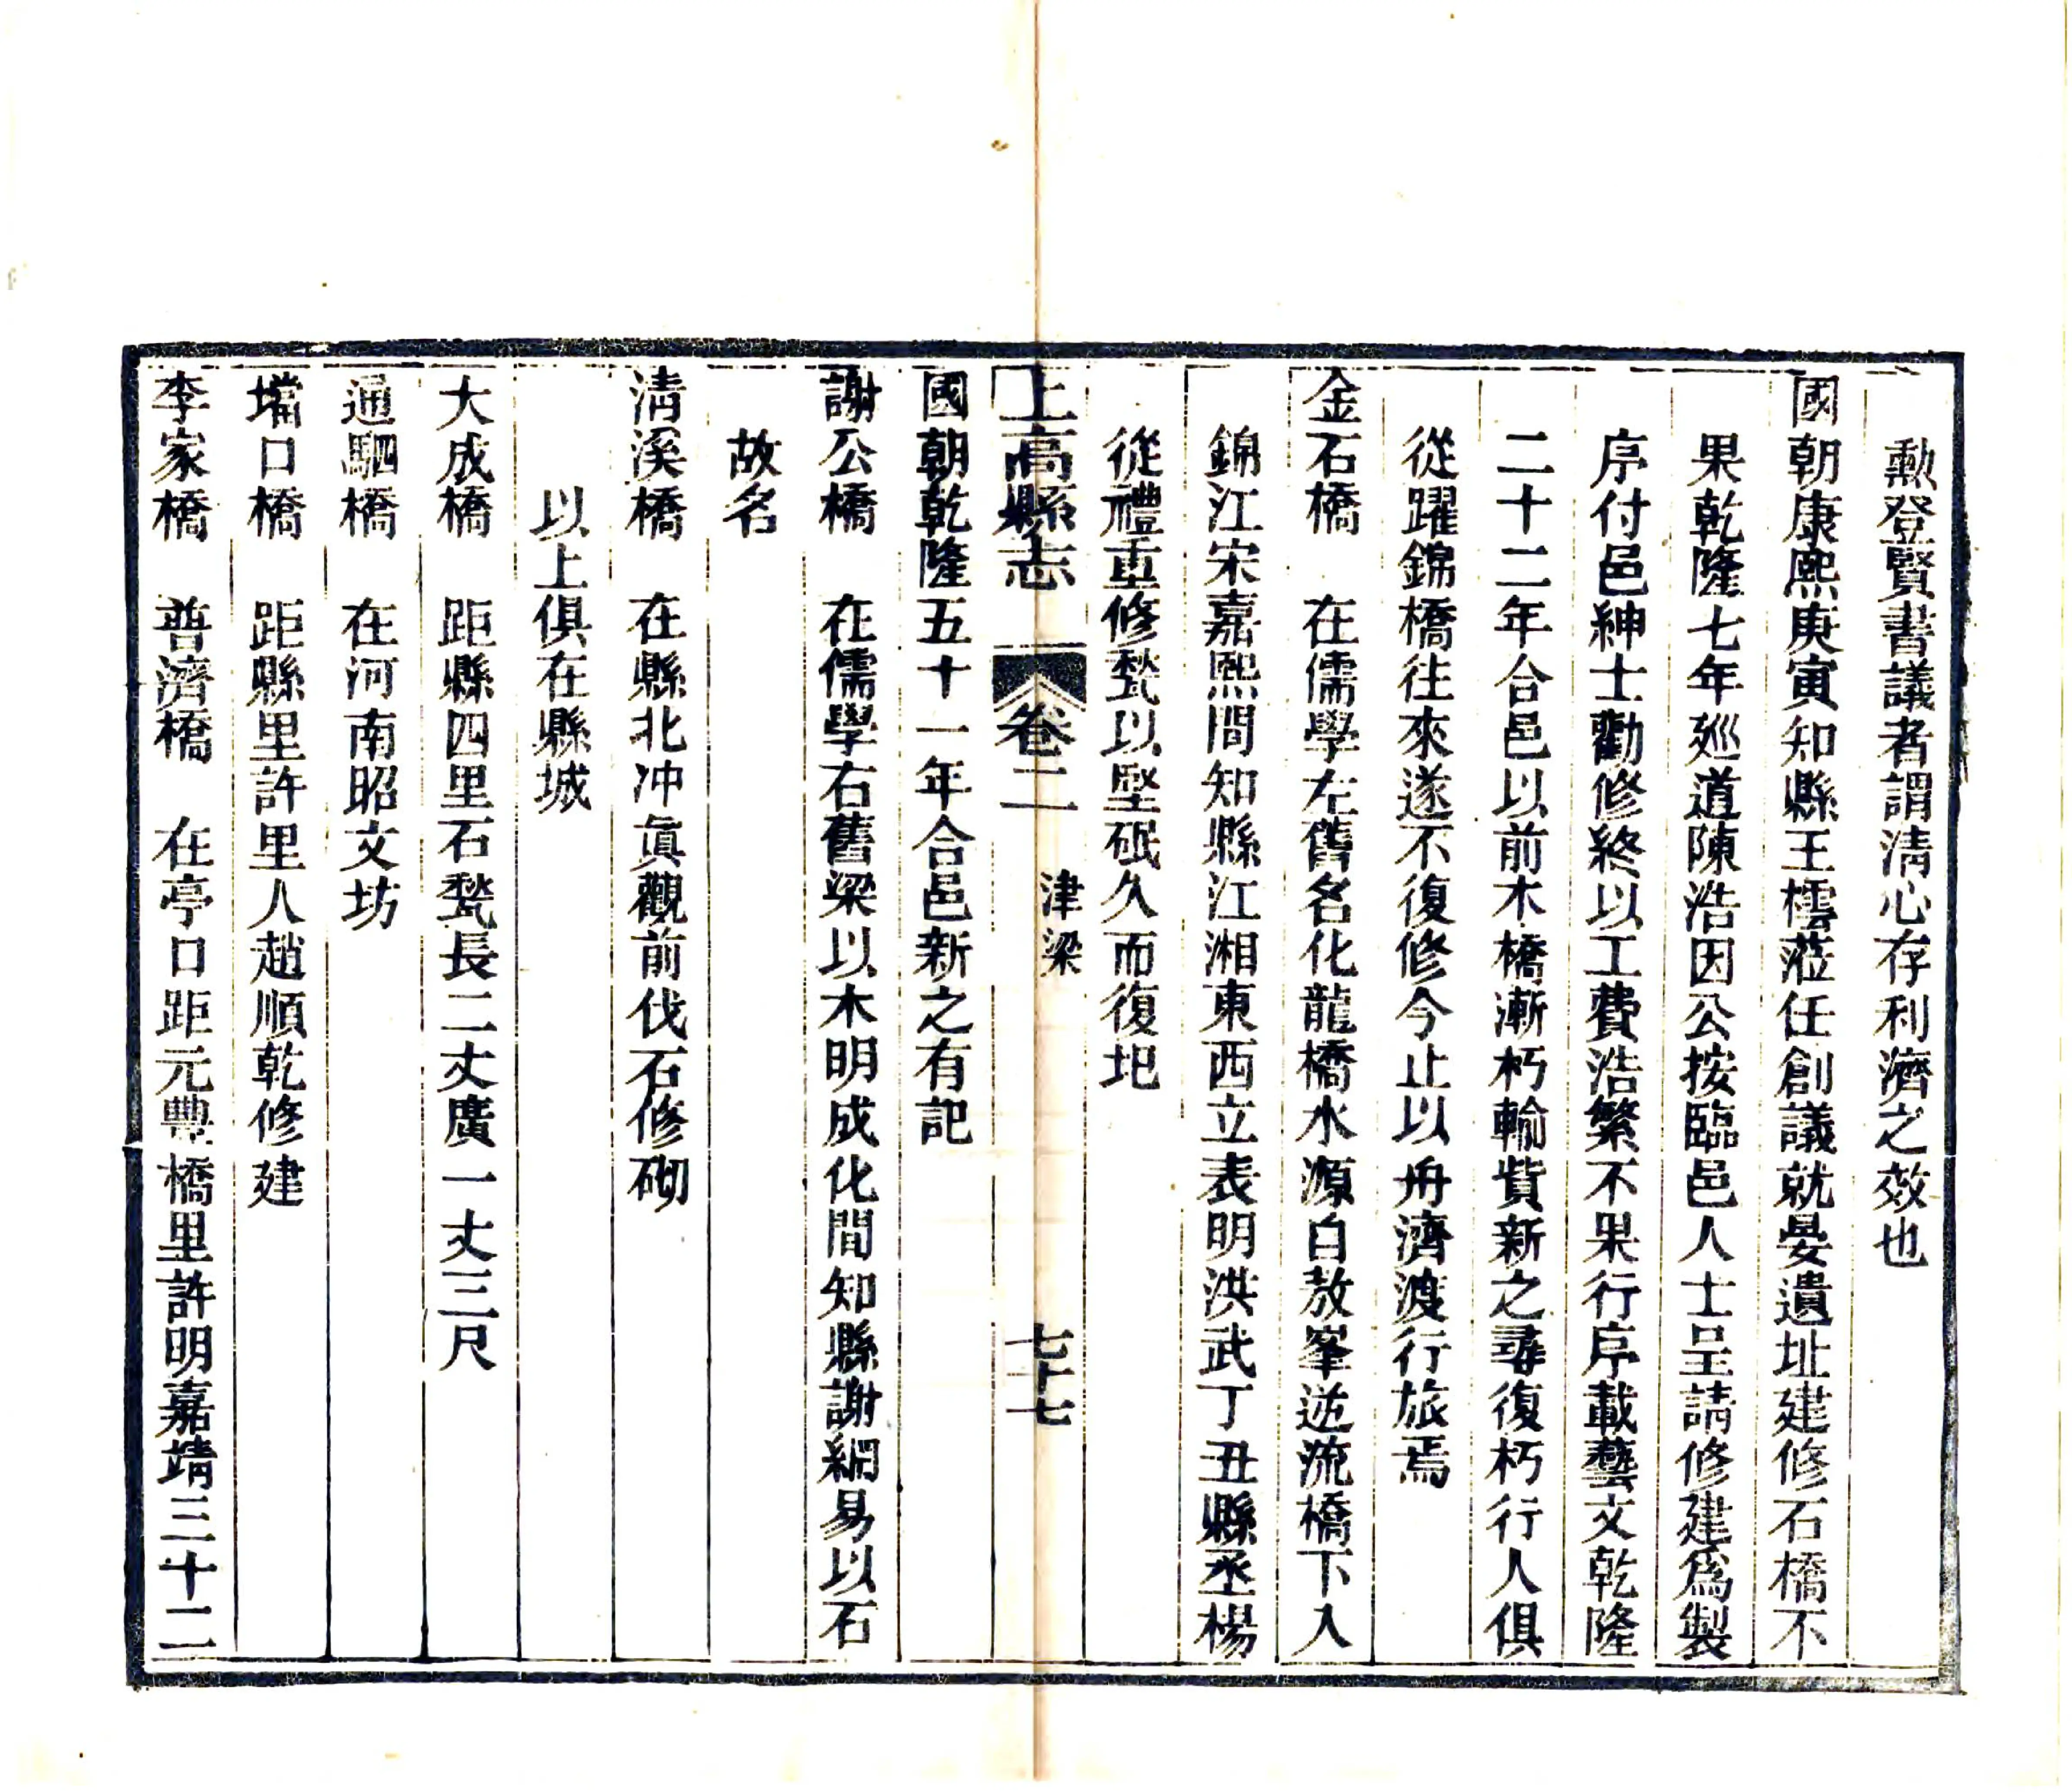 勲登賢書議者謂清心存利濟之效也
國朝康熙庚寅知縣王橒蒞任創議就晏遺址建修石橋不
果乾隆七年廵道陳浩因公按臨邑人士呈請修建爲製
序付邑紳士勸修終以工費浩繁不果行序載藝文乾隆
二十二年合邑以前木橋漸朽輸貲新之尋復朽行人俱
從躍錦橋往來遂不復修今止以舟濟渡行旅焉
金石橋　在儒學左舊名化龍橋水源自敖峯逆流橋下入
錦江宋嘉熙間知縣江湘東西立表明洪武丁丑縣丞楊
從禮重修甃以堅砥久而復圮
上高縣志　卷二　津梁　七十七
國朝乾隆五十一年合邑新之有記
謝公橋　在儒學右舊梁以木明成化間知縣謝綱易以石
故名
清溪橋　在縣北冲眞觀前伐石修砌
以上俱在縣城
大成橋　距縣四里石甃長二丈廣一丈三尺
通駟橋　在河南昭文坊
壋口橋　距縣里許里人趙順乾修建
李家橋　普濟橋　在亭口距元豐橋里許明嘉靖三十二